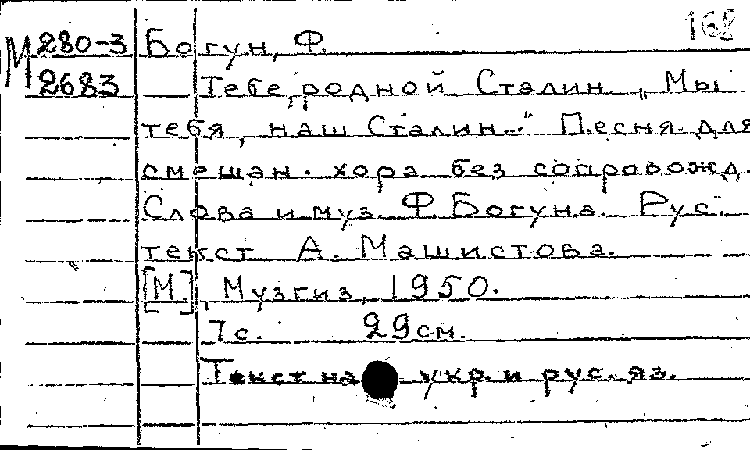 168
М 280-3 Богун, Ф.
2683 Тебе, родной Сталин. „Мы
тебя, наш Сталин..." Песня для
смешан. хора без сопровожд.
Слова и муз. Ф. Богуна. Рус.
текст А. Машистова.
[М], Музгиз, 1950.
7 с. 29 см.
Текст на укр. и рус. яз.